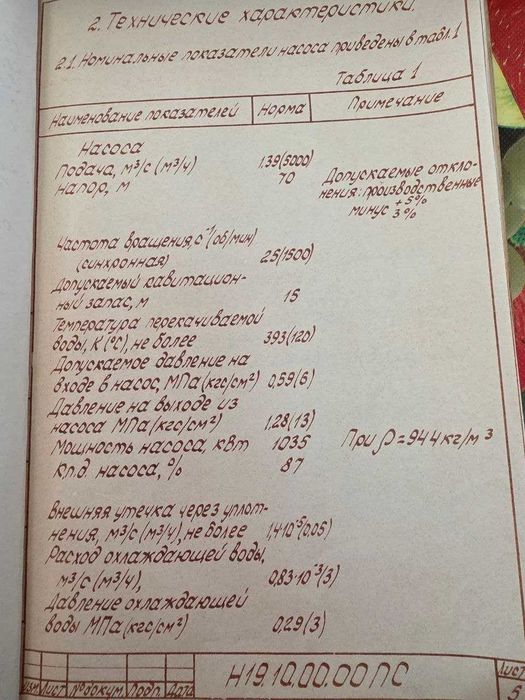 2. Технические характеристики.
2.1. Номинальные показатели насоса приведены в табл.1
Таблица 1
Наименование показателей Норма Примечание
Насоса
Подача, м³/с (м³/ч) 1,39(5000)
Напор, м 70
Допускаемые откло-
нения: производственные
+5%
минус 3%
Частота вращения, с⁻¹ (об/мин)
(синхронная) 25(1500)
Допускаемый кавитацион-
ный запас, м 15
Температура перекачиваемой
воды, К (°С), не более 393(120)
Допускаемое давление на
входе в насос, МПа (кгс/см²) 0,59(6)
Давление на выходе из
насоса МПа (кгс/см²) 1,28(13)
Мощность насоса, квт 1035 При ρ=944 кг/м³
кп.д. насоса, % 87
Внешняя утечка через уплот-
нения, м³/с (м³/ч), не более 1,4·10⁻⁵(0,05)
Расход охлаждающей воды,
м³/с (м³/ч), 0,83·10⁻³(3)
Давление охлаждающей
воды МПа (кгс/см²) 0,29(3)
Изм Лист № докум. Подп. Дата
Н19.10.00.00 ПС
Лист